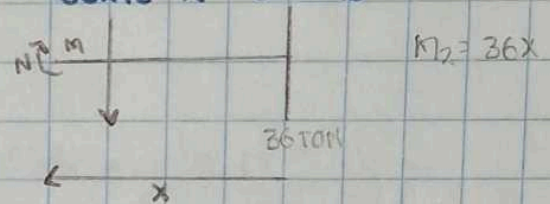 N M
M₂ = 36x
36 TON
x